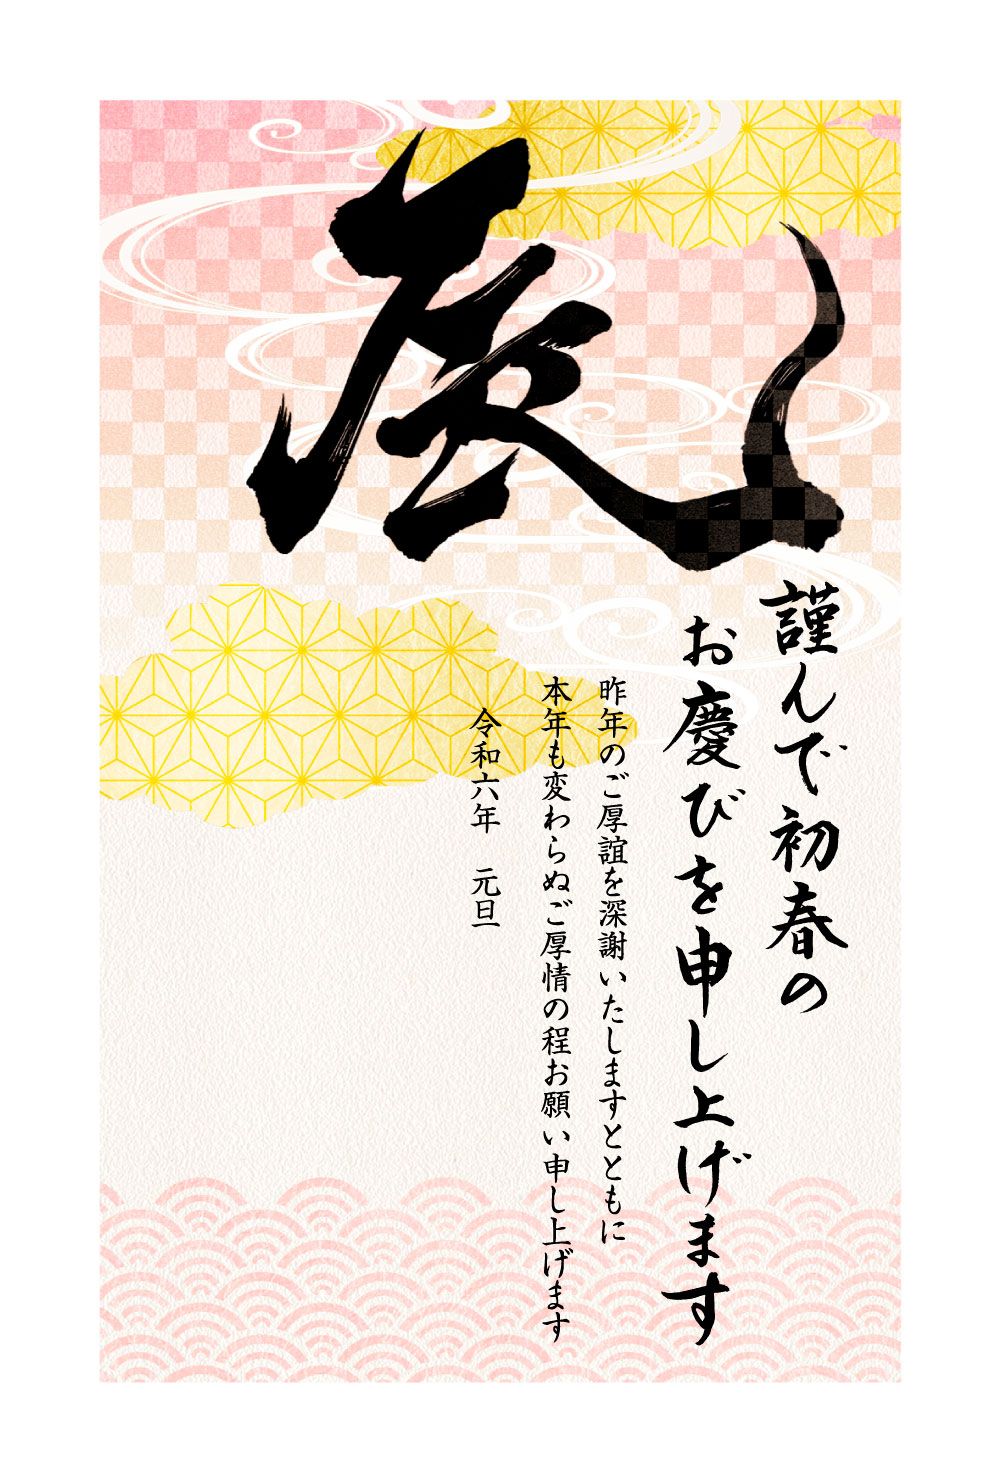 辰
謹んで初春の
お慶びを申し上げます
昨年のご厚誼を深謝いたしますとともに
本年も変わらぬご厚情の程お願い申し上げます
令和六年　元旦